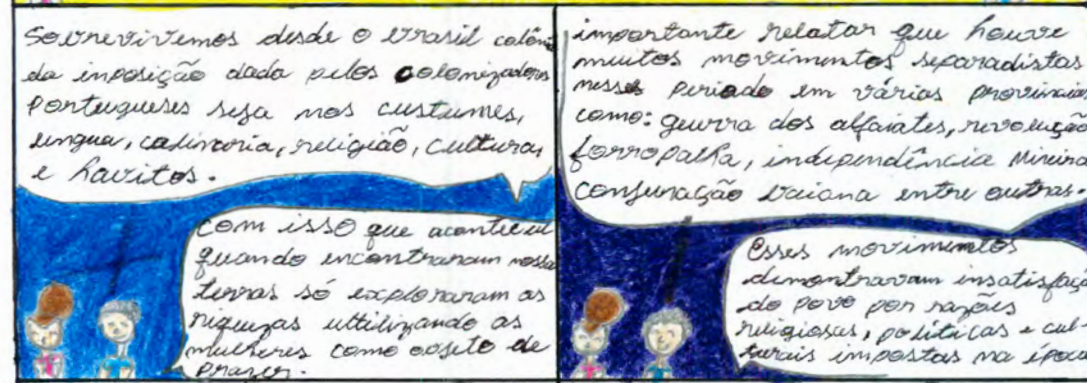 Sovrevivemos desde o vrasil colôni
da inposição dada pelos colonizadores
Portugueses seja nos custumes,
lingua, culinaria, religião, culturas
e havitos.
Com isso que aconteceu
quando encontraram nossa
terras só exploraram as
riquezas ultilizando as
mulheres como ovjeto de
prazer.
importante relatar que houve
muitos movimentos separadistas
nesses periodo em várias provincias
como: guerra dos alfaiates, revolução
forropalha, independência Mineira
conjuração vaiana entre outras.
Esses movimentos
demontravam insatisfaç
do povo por razões
religiosas, politicas e cul-
turais impostas na época